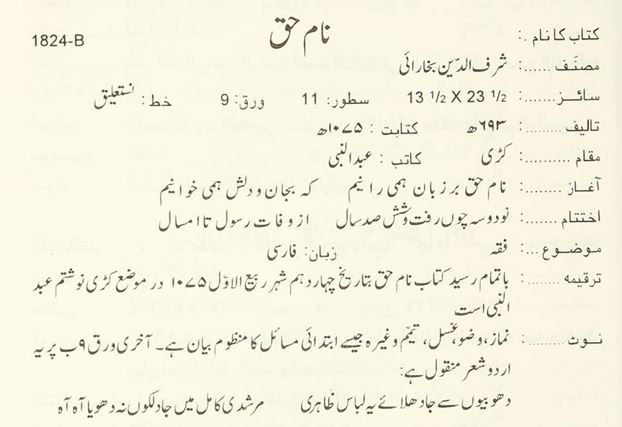 کتاب کا نام .: نام حق 1824-B
مصنف ......: شرف الدّین بخارائی
سائز......: 13 1/2 X 23 1/2 سطور: 11 ورق: 9 خط: نستعلیق
تالیف ......: ۶۹۳ھ کتابت : ۱۰۷۵ھ
مقام .........: کڑی کاتب : عبدالنبی
آغاز .........: نام حق بر زبان ہمی رانیم که بجان و دلش ہمی خوانیم
اختتام ......: نود و سه چوں رفت و شش صد سال از وفات رسول تا امسال
موضوع ...: فقه زبان: فارسی
ترقیمه ......: باتمام رسید کتاب نام حق بتاریخ چہاردہم شہر ربیع الاوّل ۱۰۷۵ در موضع کڑی نوشتم عبد
النبی است
نوٹ .........: نماز، وضو، غسل، تیمّم وغیرہ جیسے ابتدائی مسائل کا منظوم بیان ہے۔ آخری ورق ۹ ب پر یہ
اردو شعر منقول ہے:
دھوبیوں سے جا دھلائے یہ لباس ظاہری مرشدی کامل میں جا دلکوں نہ دھویا آہ آہ